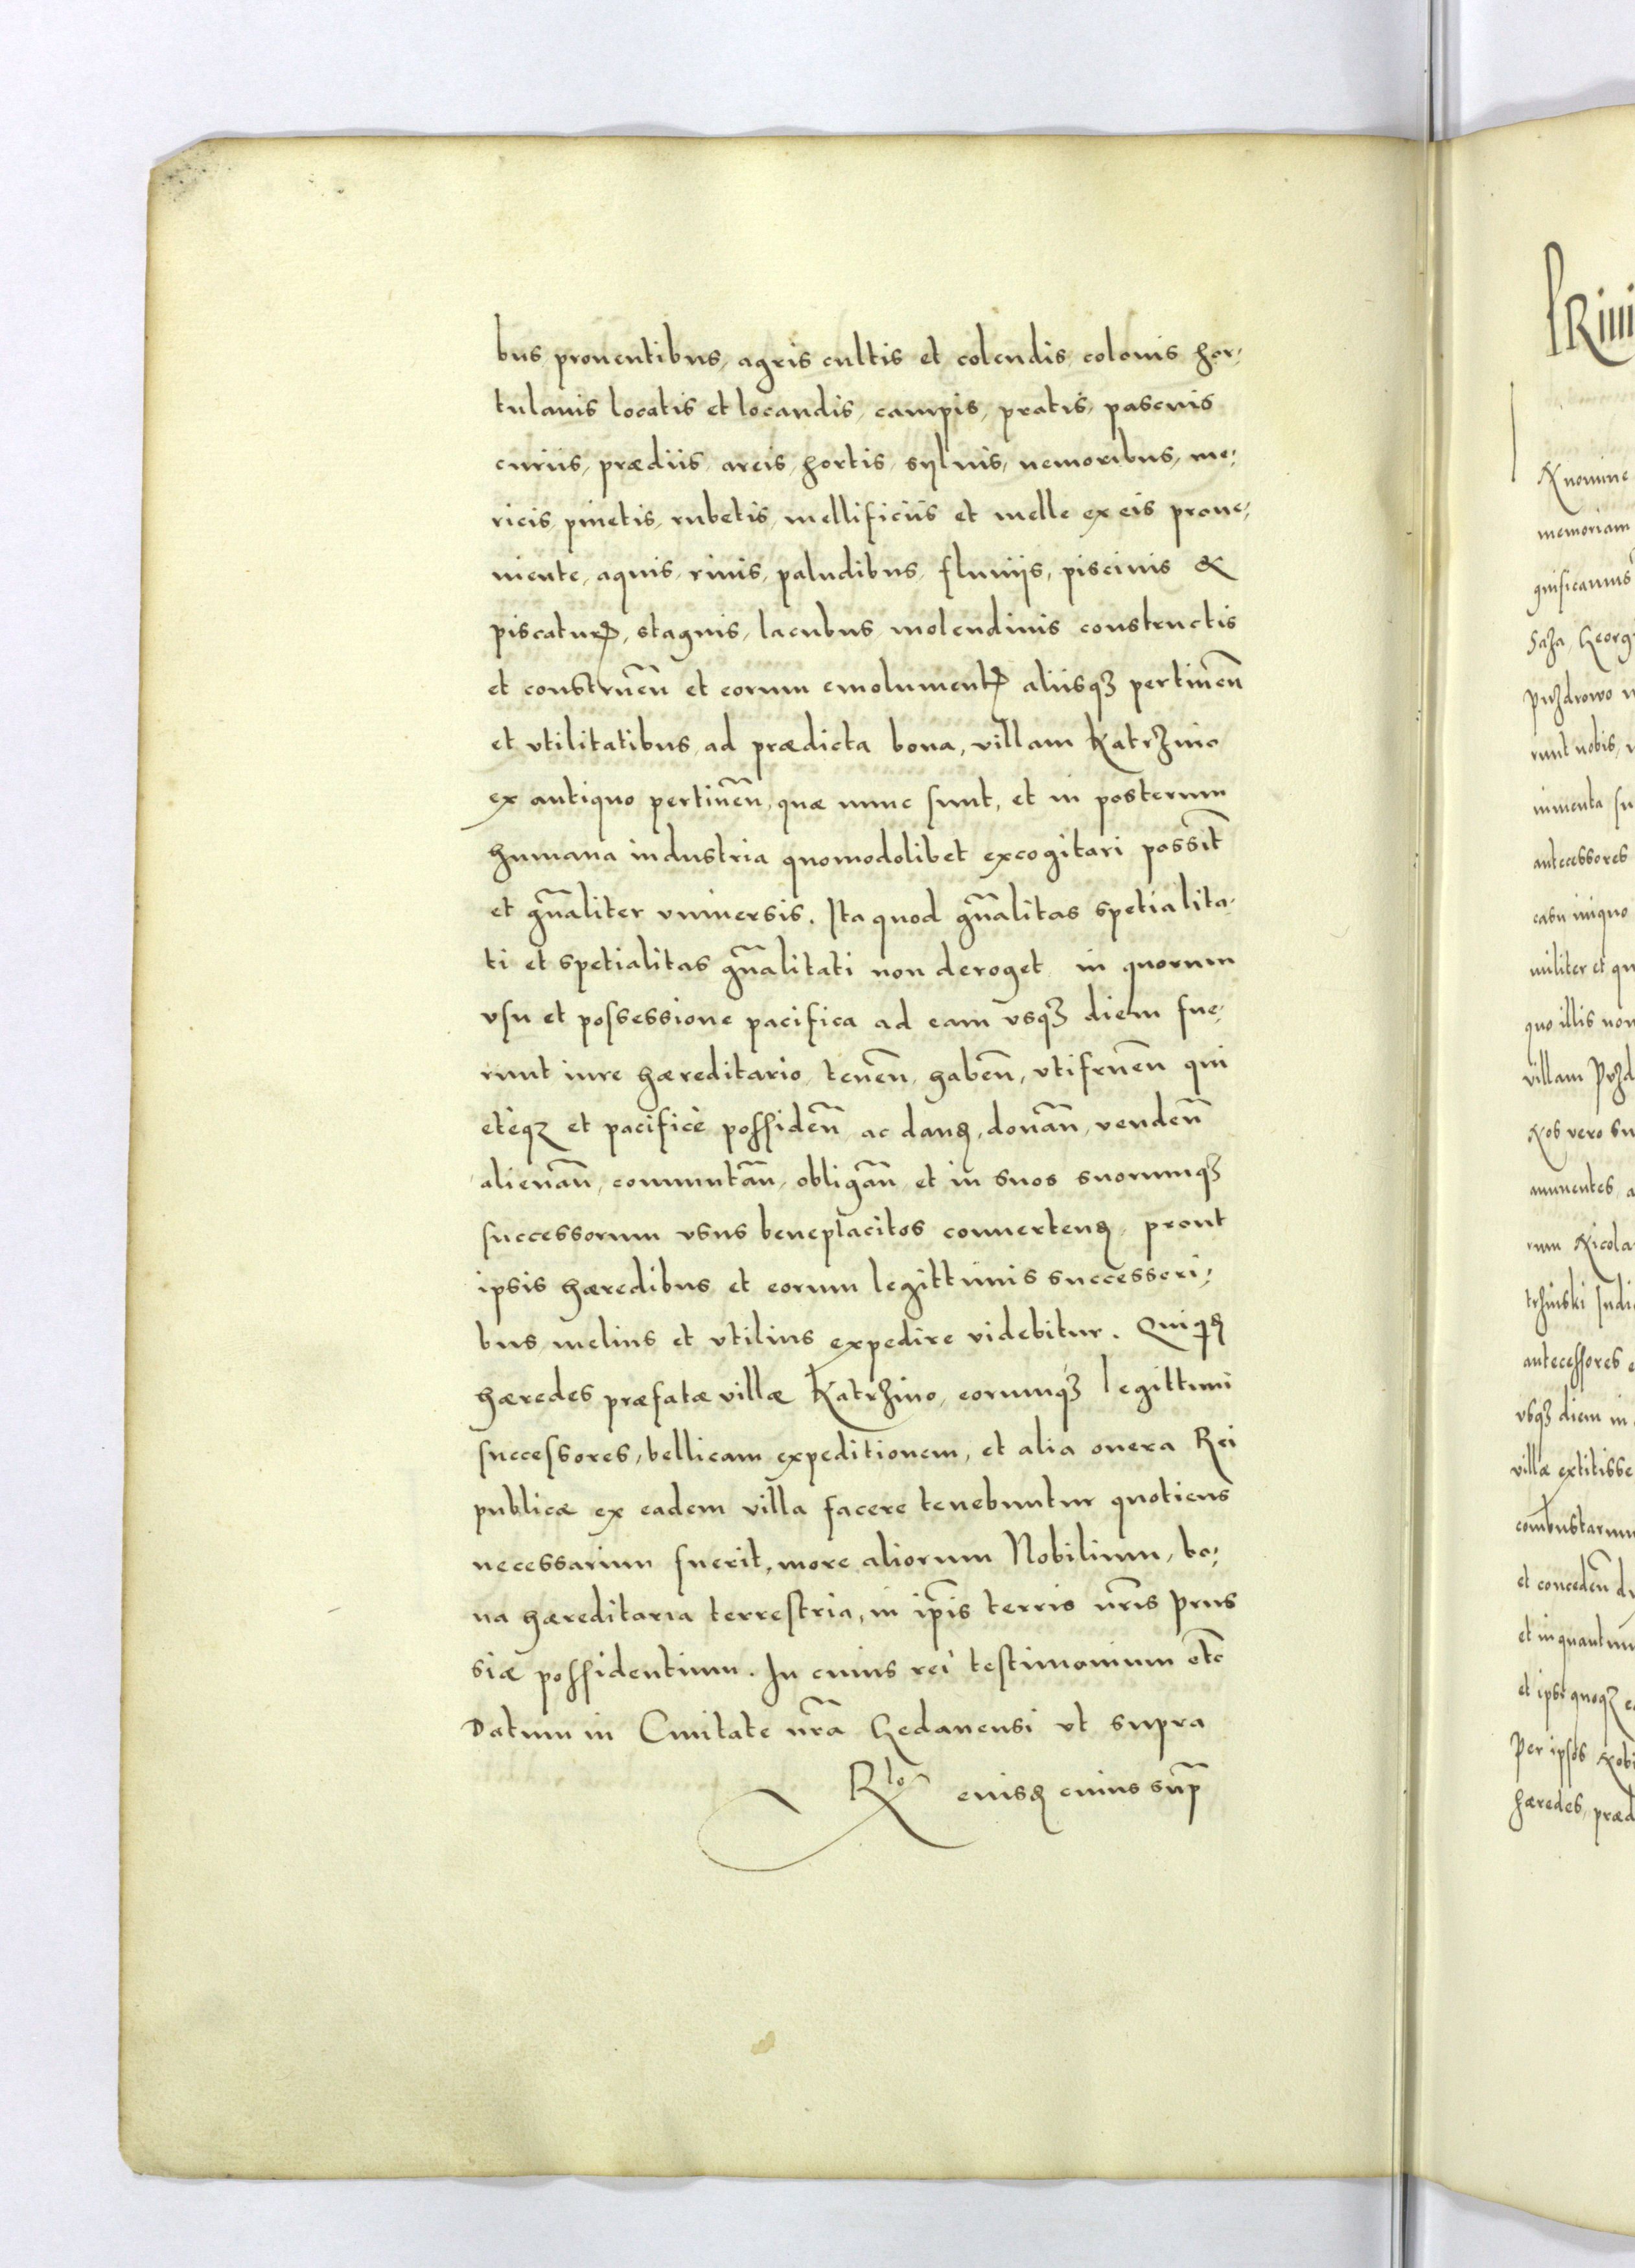 bus prouentibus, agris cultis et colendis colonis hor,
tulanis locatis et locandis, campis, pratis, pascuis
curiis, prædiis areis, hortis, syluis, nemoribus, me,
ricis pinetis, rubetis, mellificiis et melle ex eis proue,
niente, aquis, riuis, paludibus, fluuiis, piscinis &
piscatur, stagnis, lacubus molendinis constructis
et construen̄ et eorum emolument aliisqȝ pertinen̄
et vtilitatibus, ad prædicta bona, villam Katrzino
ex antiquo pertinen̄, quæ nunc sunt, et in posterum
humana industria quomodolibet excogitari possit̄
et gn̄aliter vniuersis. Ita quod gn̄alitas spetialita,
ti et spetialitas gn̄alitati non deroget in quorum
vsu et possessione pacifica ad eam vsqȝ diem fue,
runt iure hæreditario, tenen̄, haben̄, vtifruen̄ qui
etèqȝ et pacificè possiden̄ ac dan, donan̄, venden̄
alienan̄, commutan̄, obligan̄ et in suos suorumqȝ
successorum vsus beneplacitos conuerten, prout
ipsis hæredibus et eorum legittimis successori,
bus melius et vtilius expedire videbitur. Qui
hæredes præfatæ villæ Katrzino, eorumqȝ legittimi
successores, bellicam expeditionem, et alia onera Rei
publicæ ex eadem villa facere tenebuntur quotiens
necessarium fuerit, more aliorum Nobilium, bo,
na hæreditaria terrestria, in ip̄is terris nr̄is Prus
siæ possidentium. In cuius rei testimonium et̄c
Datum in Ciuitate nr̄a Gedanensi vt supra
R<sup>lo</sup> cuius sup̄
PRiui
N nomine
memoriam
gnificamus
Saza, Georg
Puzdrowo
runt nobis,
nimenta su
antecessores
casu iniquo
militer et qu
quo illis non
villam Puzd
Nos vero su
annuentes, a
rum Nicola
trzinski Iudi
antecessores e
vsqȝ diem in
villæ extitisse
combustarum
et conceden̄ d
et inquantum
et ipsi quoqȝ e
Per ipsos Nobi
hæredes, præd